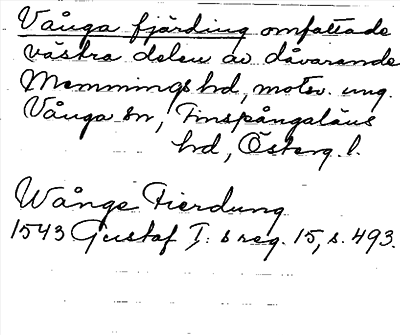 Vånga fjärding omfattade
västra delen av dåvarande
Memmings hd, motsv. ung.
Vånga sn, Finspångaläns
hd, Österg. l.
Wånge Fierdung
1543 Gustaf I: s reg. 15, s. 493.